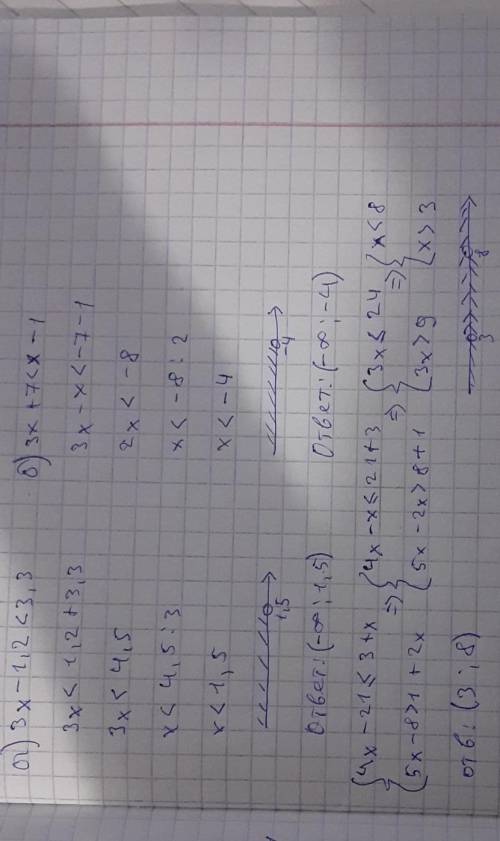 а) 3x - 1,2 < 3,3
3x < 1,2 + 3,3
3x < 4,5
x < 4,5 : 3
x < 1,5
1,5
Ответ: (-∞ ; 1,5)
б) 3x + 7 < x - 1
3x - x < -7 - 1
2x < -8
x < -8 : 2
x < -4
-4
Ответ: (-∞ ; -4)
{ 4x - 21 ≤ 3 + x => { 4x - x ≤ 21 + 3 => { 3x ≤ 24 => { x < 8
{ 5x - 8 > 1 + 2x { 5x - 2x > 8 + 1 { 3x > 9 { x > 3
3 8
отв: (3 ; 8)